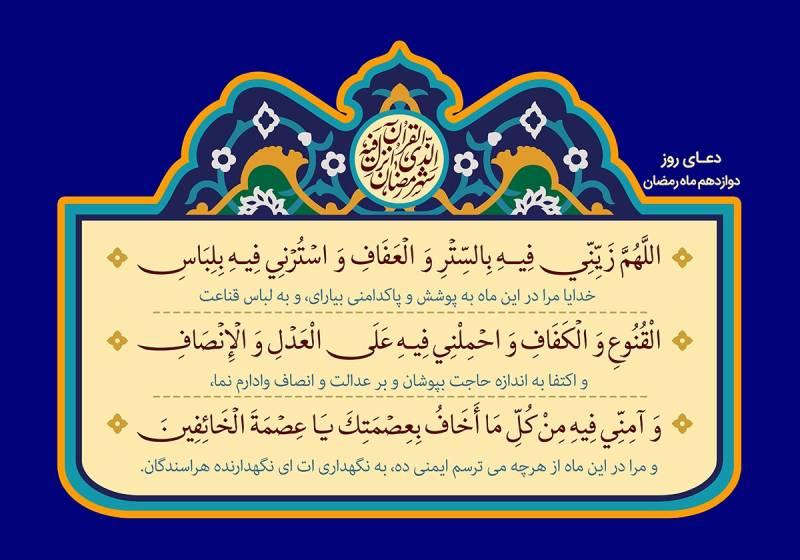 شهر رمضان الذی انزل فیه القرآن
دعـای روز
دوازدهم ماه رمضان
اللَّهُمَّ زَيِّنِّي فِيهِ بِالسِّتْرِ وَ الْعَفَافِ وَ اسْتُرْنِي فِيهِ بِلِبَاسِ
خدایا مرا در این ماه به پوشش و پاکدامنی بیارای، و به لباس قناعت
الْقُنُوعِ وَ الْكَفَافِ وَ احْمِلْنِي فِيهِ عَلَى الْعَدْلِ وَ الْإِنْصَافِ
و اکتفا به اندازه حاجت بپوشان و بر عدالت و انصاف وادارم نما،
وَ آمِنِّي فِيهِ مِنْ كُلِّ مَا أَخَافُ بِعِصْمَتِكَ يَا عِصْمَةَ الْخَائِفِينَ
و مرا در این ماه از هرچه می ترسم ایمنی ده، به نگهداری ات ای نگهدارنده هراسندگان.